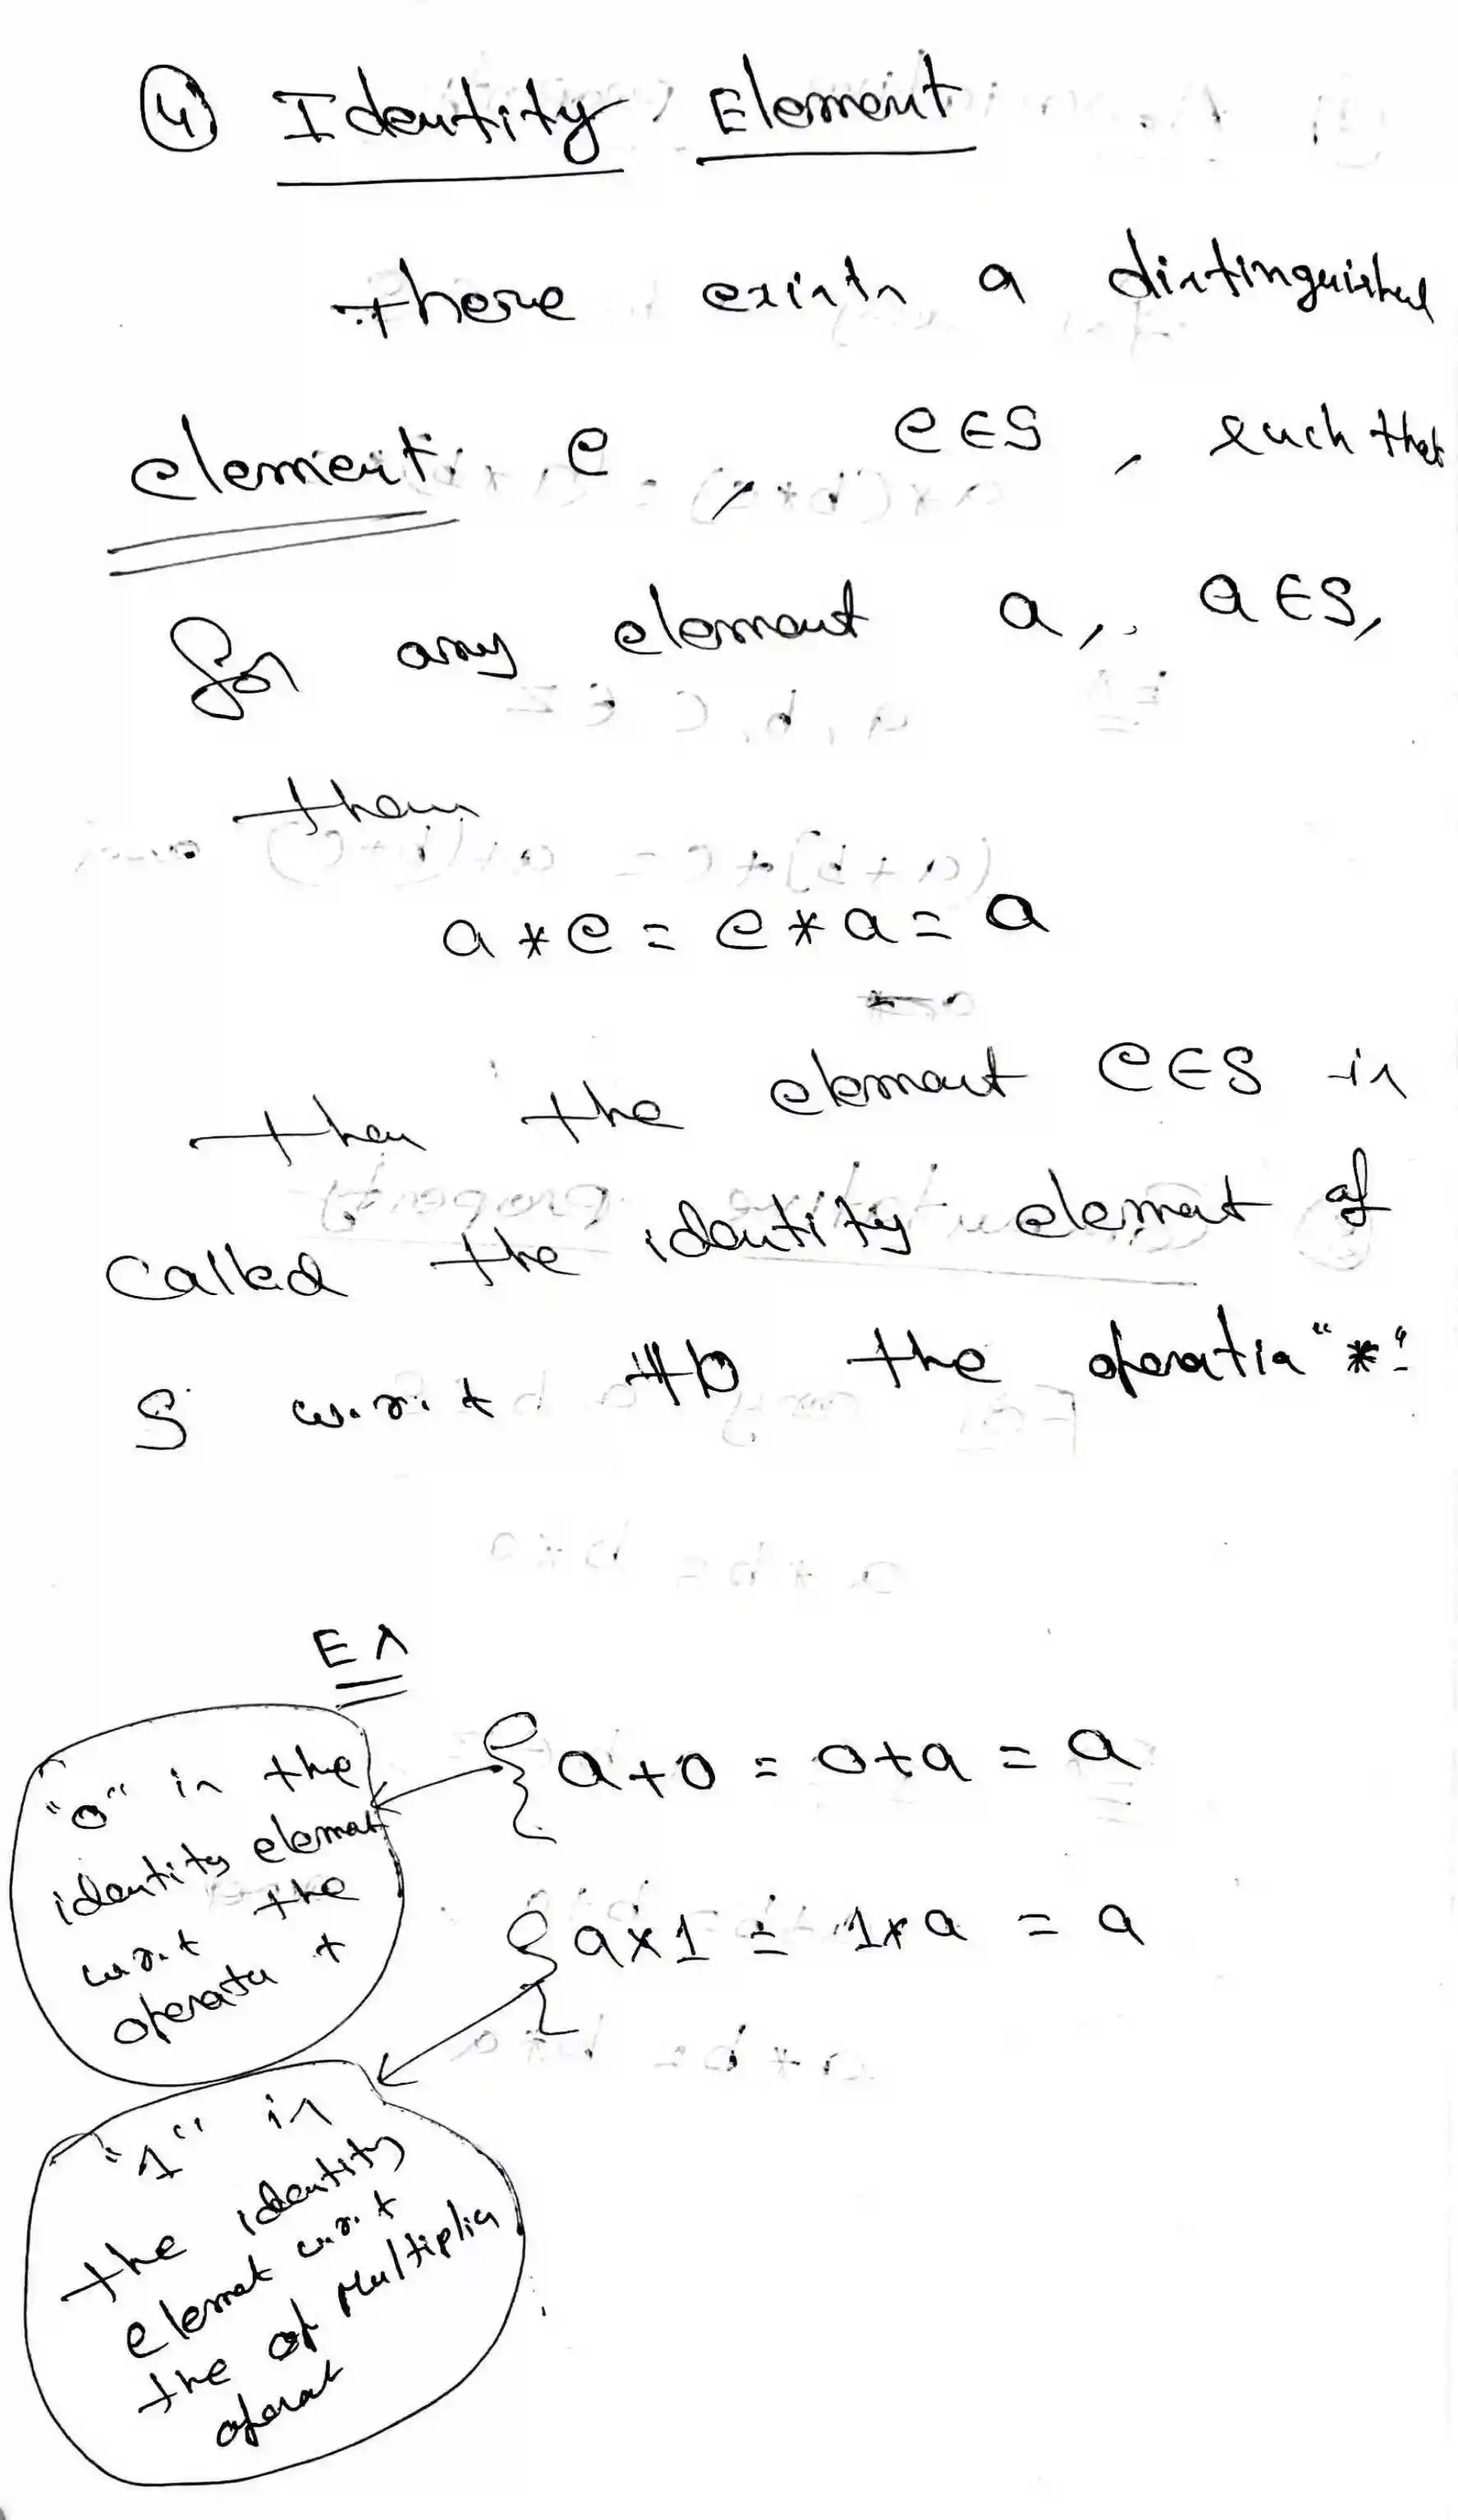 ④ Identity Element
there exists a distinguished
element e, e∈S, such that
for any element a, a∈S,
then
a * e = e * a = a
then the element e∈S is
called the identity element of
S w.r.t to the operatin "*".
Ex
{ a+0 = 0+a = a
"0" is the
identity elemet
w.r.t the
operatn +
{ a×1 = 1×a = a
"1" is
the identity
elemet w.r.t
the of Multiplin
operat